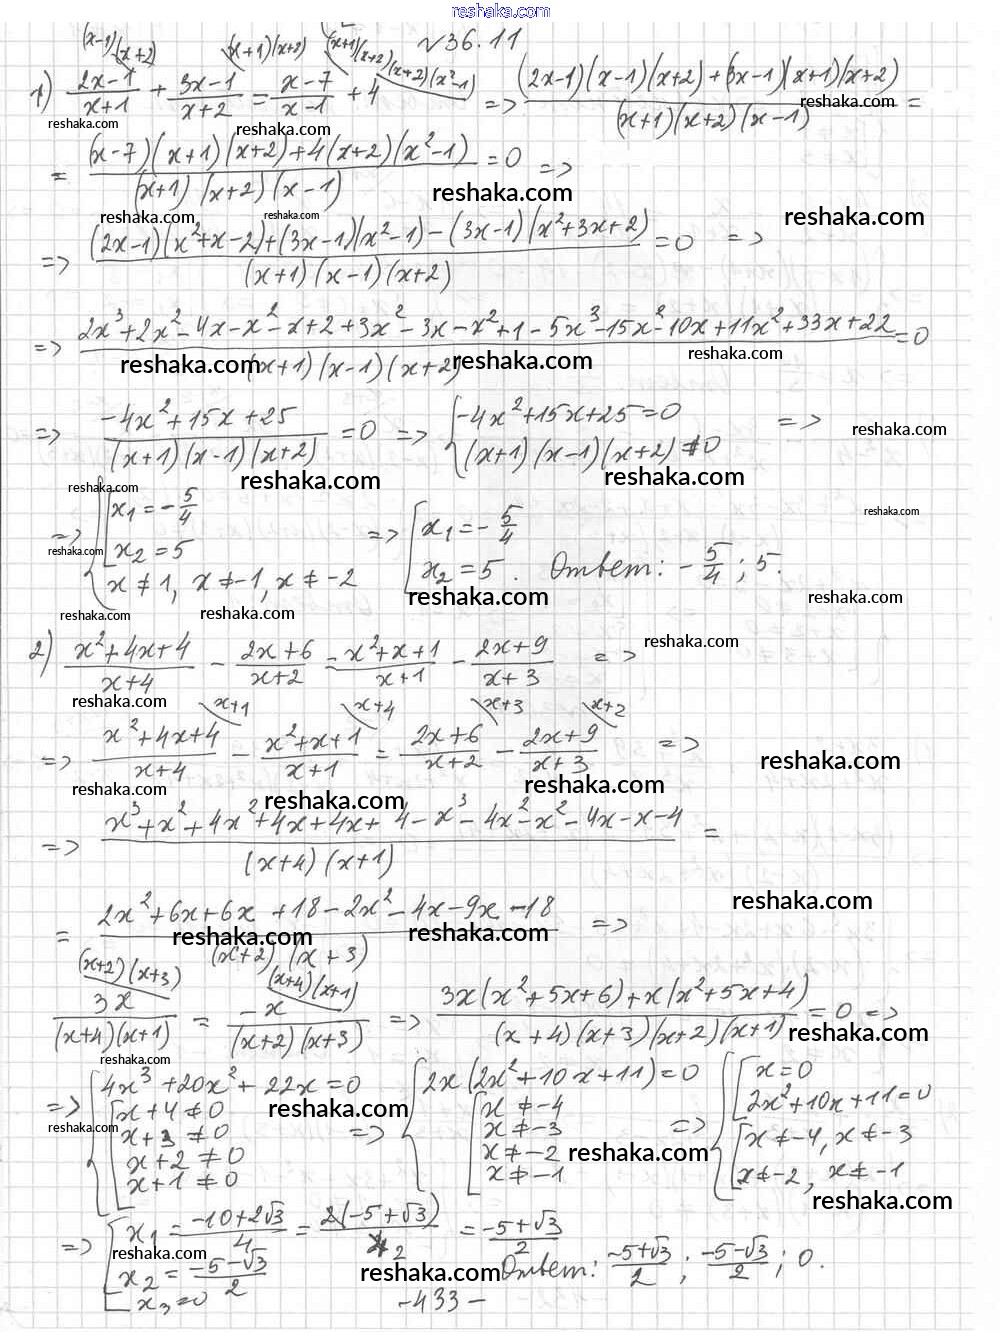 reshaka.com
(x-1)(x+2) (x+1)(x+2) (x+1)(x+2) (x+2)(x²-1) №36.11
1) (2x-1)/(x+1) + (3x-1)/(x+2) = (x-7)/(x-1) + 4 => ((2x-1)(x-1)(x+2)+(3x-1)(x+1)(x+2))/((x+1)(x+2)(x-1)) =
= ((x-7)(x+1)(x+2)+4(x+2)(x²-1))/((x+1)(x+2)(x-1)) = 0 =>
=> ((2x-1)(x²+x-2)+(3x-1)(x²-1)-(3x-1)(x²+3x+2))/((x+1)(x-1)(x+2)) = 0 =>
=> (2x³+2x²-4x-x²-x+2+3x²-3x-x²+1-5x³-15x²-10x+11x²+33x+22)/((x+1)(x-1)(x+2)) = 0
=> (-4x²+15x+25)/((x+1)(x-1)(x+2)) = 0 => { -4x²+15x+25=0 =>
(x+1)(x-1)(x+2)≠0
=> { [ x₁=-5/4 => [ x₁=-5/4
x₂=5 x₂=5. Ответ: -5/4; 5.
x≠1, x≠-1, x≠-2
2) (x²+4x+4)/(x+4) - (2x+6)/(x+2) = (x²+x+1)/(x+1) - (2x+9)/(x+3) =>
x+1 x+4 x+3 x+2
=> (x²+4x+4)/(x+4) - (x²+x+1)/(x+1) = (2x+6)/(x+2) - (2x+9)/(x+3) =>
=> (x³+x²+4x²+4x+4x+4-x³-4x²-x²-4x-x-4)/((x+4)(x+1)) =
= (2x²+6x+6x+18-2x²-4x-9x-18)/((x+2)(x+3)) =>
(x+2)(x+3) (x+4)(x+1)
3x/((x+4)(x+1)) = -x/((x+2)(x+3)) => (3x(x²+5x+6)+x(x²+5x+4))/((x+4)(x+3)(x+2)(x+1)) = 0 =>
=> { 4x³+20x²+22x=0 => { 2x(2x²+10x+11)=0 => { [ x=0
[ x+4≠0 [ x≠-4 2x²+10x+11=0
x+3≠0 x≠-3 [ x≠-4, x≠-3
x+2≠0 x≠-2 x≠-2, x≠-1
x+1≠0 x≠-1
=> [ x₁=(-10+2√3)/4 = 2(-5+√3)/4 2 = (-5+√3)/2
x₂=(-5-√3)/2 Ответ: (-5+√3)/2; (-5-√3)/2; 0.
x₃=0
-433-